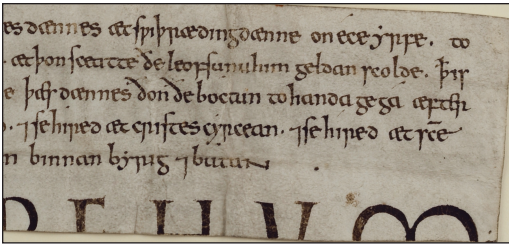 es dænnes æt sƿiþrædingdænne on ece yrfe . to
. æt þon sceatte ðe leofsunu him geldan scolde . þis
e þæs dænnes don ðe boctun to handa gega æfter
. ⁊ se hired æt cristes cyrcean . ⁊ se hired æt sc̄e
n binnan byrig ⁊ butan .